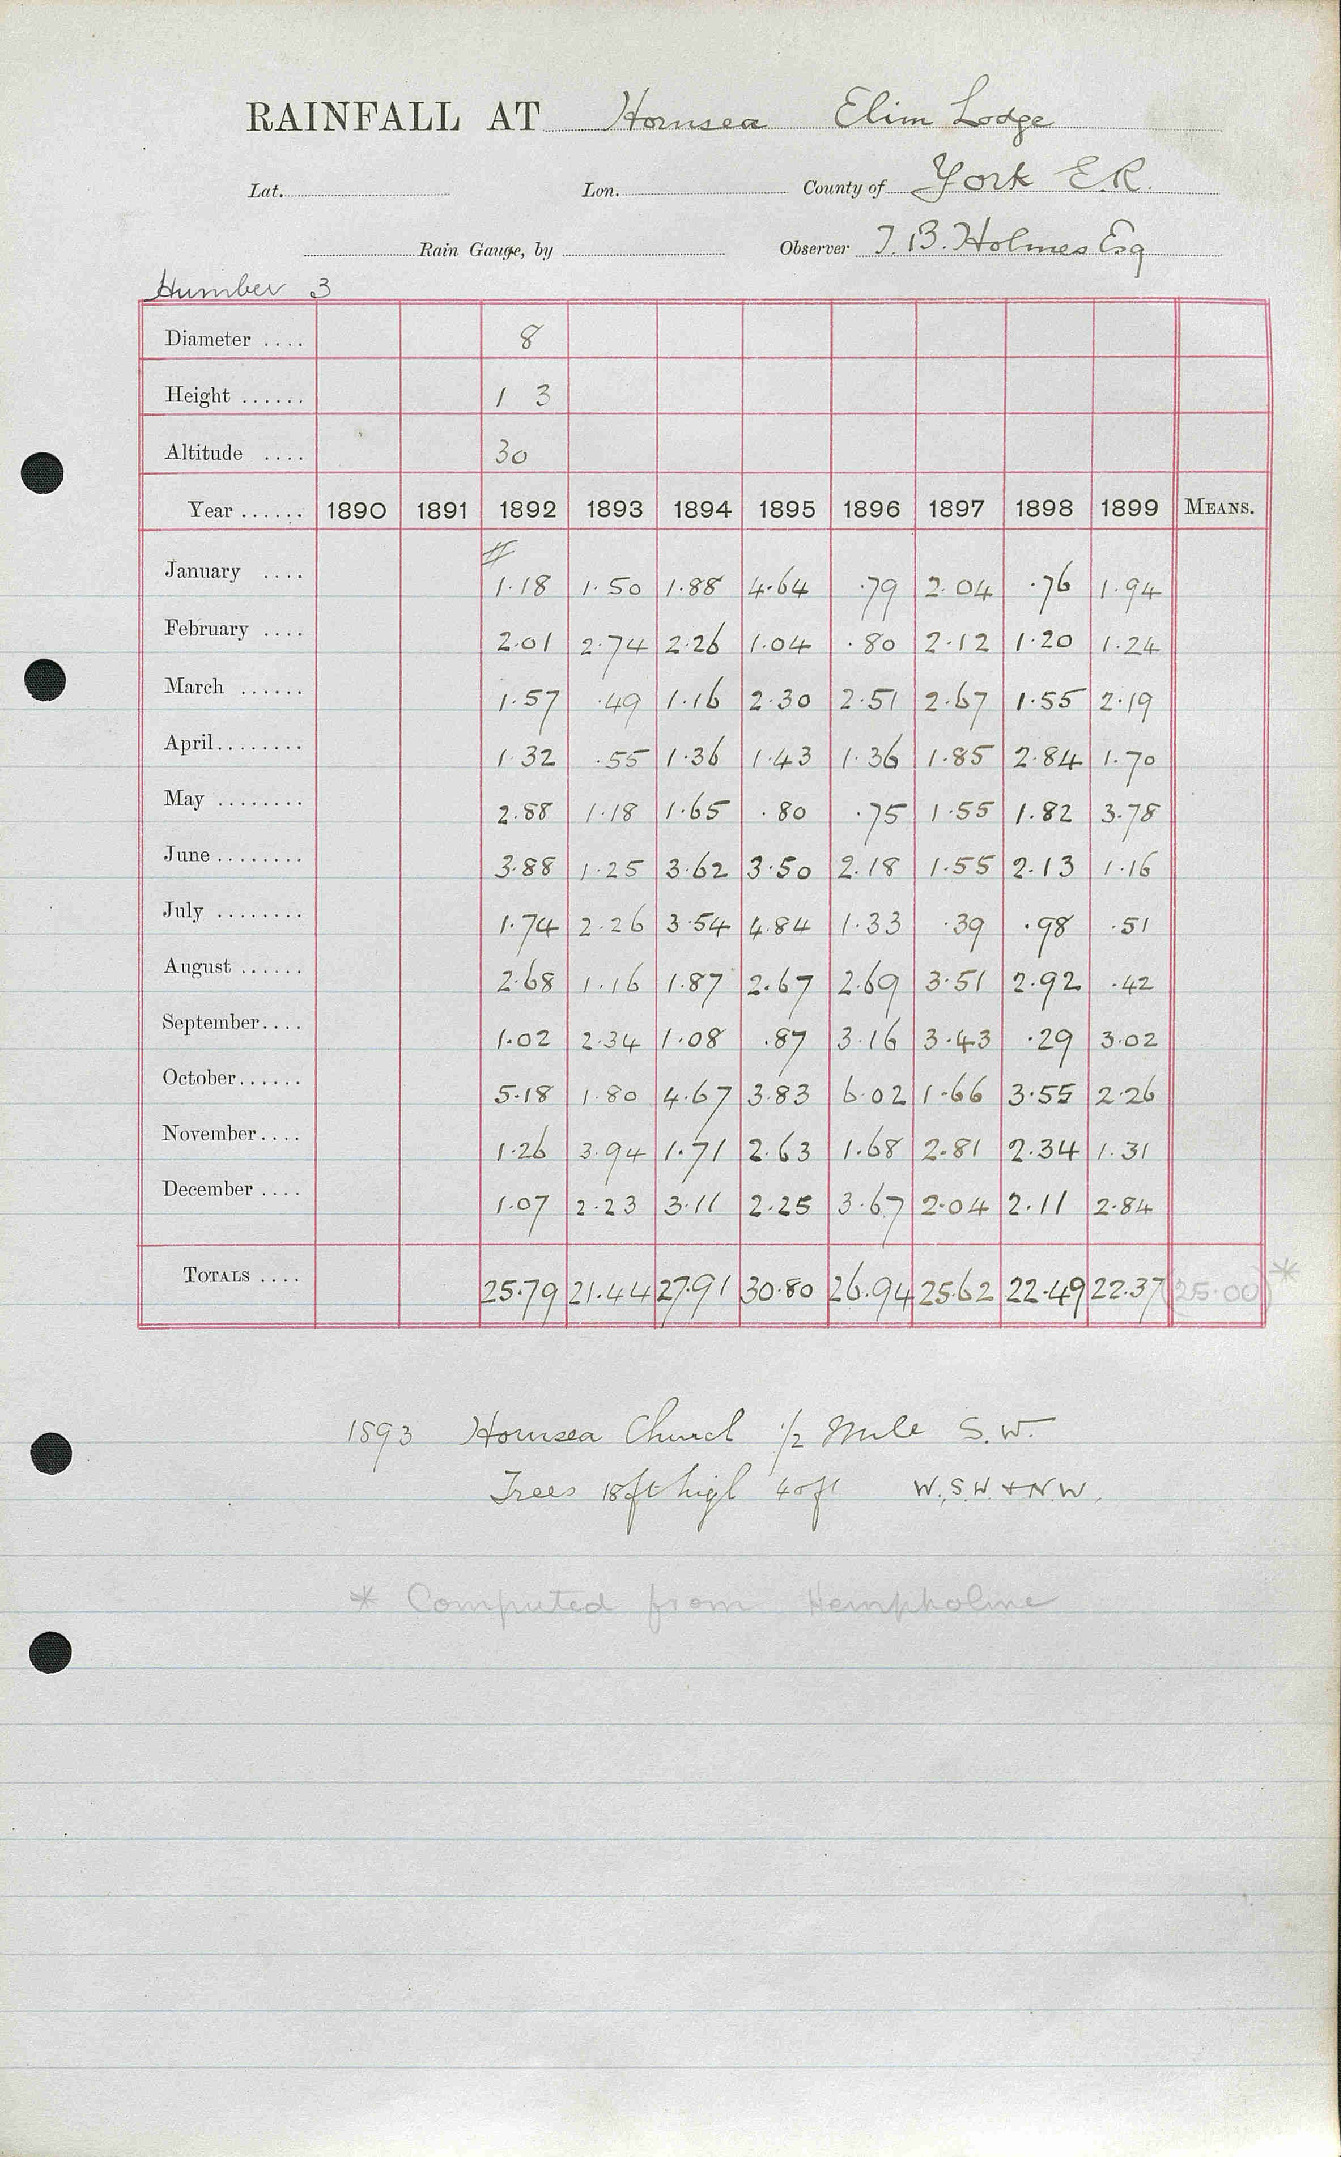 RAINFALL AT Hornsea Elim Lodge
Lat. Lon. County of York E.R.
Rain Gauge, by Observer T. B. Holmes Esq
Humber 3
Diameter .... 8
Height ...... 1 3
Altitude .... 30
Year ...... 1890 1891 1892 1893 1894 1895 1896 1897 1898 1899 MEANS.
January .... # 1.18 1.50 1.88 4.64 .79 2.04 .76 1.94
February .... 2.01 2.74 2.26 1.04 .80 2.12 1.20 1.24
March ...... 1.57 .49 1.16 2.30 2.51 2.67 1.55 2.19
April........ 1.32 .55 1.36 1.43 1.36 1.85 2.84 1.70
May ........ 2.88 1.18 1.65 .80 .75 1.55 1.82 3.78
June ........ 3.88 1.25 3.62 3.50 2.18 1.55 2.13 1.16
July ........ 1.74 2.26 3.54 4.84 1.33 .39 .98 .51
August ...... 2.68 1.16 1.87 2.67 2.69 3.51 2.92 .42
September.... 1.02 2.34 1.08 .87 3.16 3.43 .29 3.02
October...... 5.18 1.80 4.67 3.83 6.02 1.66 3.55 2.26
November.... 1.26 3.94 1.71 2.63 1.68 2.81 2.34 1.31
December .... 1.07 2.23 3.11 2.25 3.67 2.04 2.11 2.84
TOTALS .... 25.79 21.44 27.91 30.80 26.94 25.62 22.49 22.37 (25.00) *
1893 Hornsea Church 1/2 Mile S.W.
Trees 18ft high 40ft W., S.W. + N.W.
* Computed from Hempholme